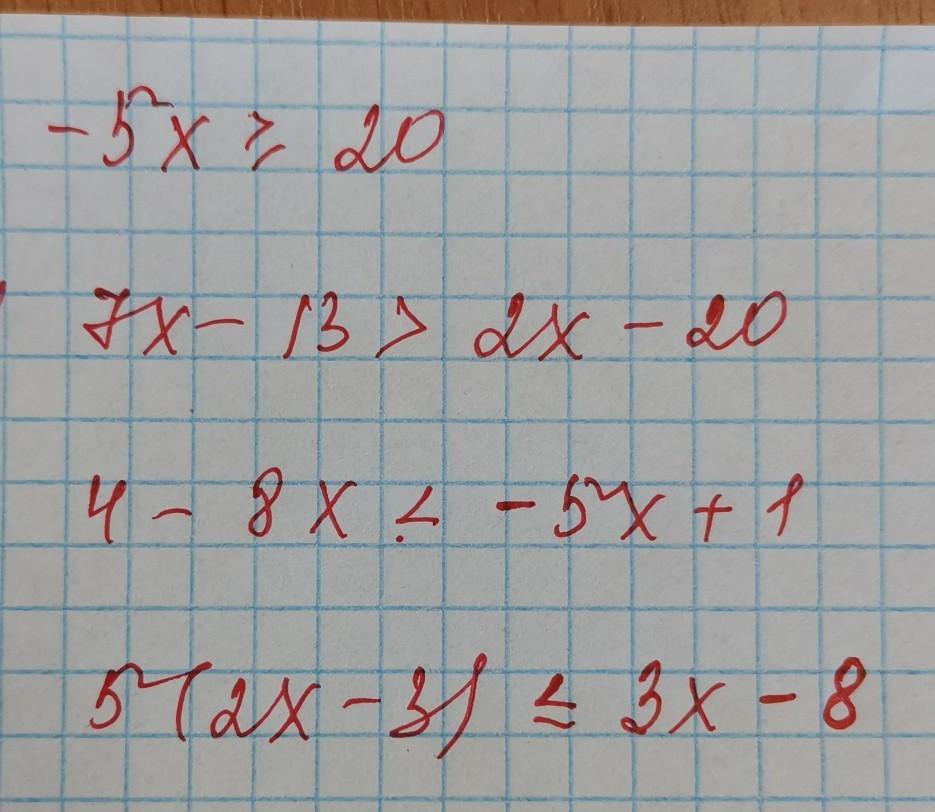 -5x ≥ 20
7x - 13 > 2x - 20
4 - 8x < -5x + 1
5(2x - 3) ≤ 3x - 8